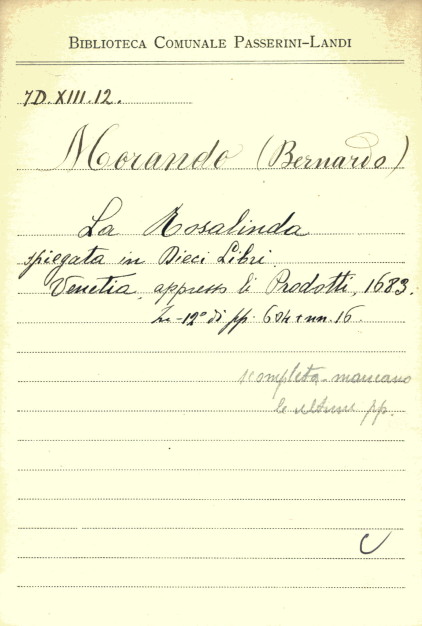 BIBLIOTECA COMUNALE PASSERINI-LANDI
7D.XIII.12.
Morando (Bernardo)
La Rosalinda
spiegata in Dieci Libri
Venetia, appresso li Prodotti, 1683.
In-12° di pp. 604 + nn. 16.
scompleta - mancano
le ultime pp.